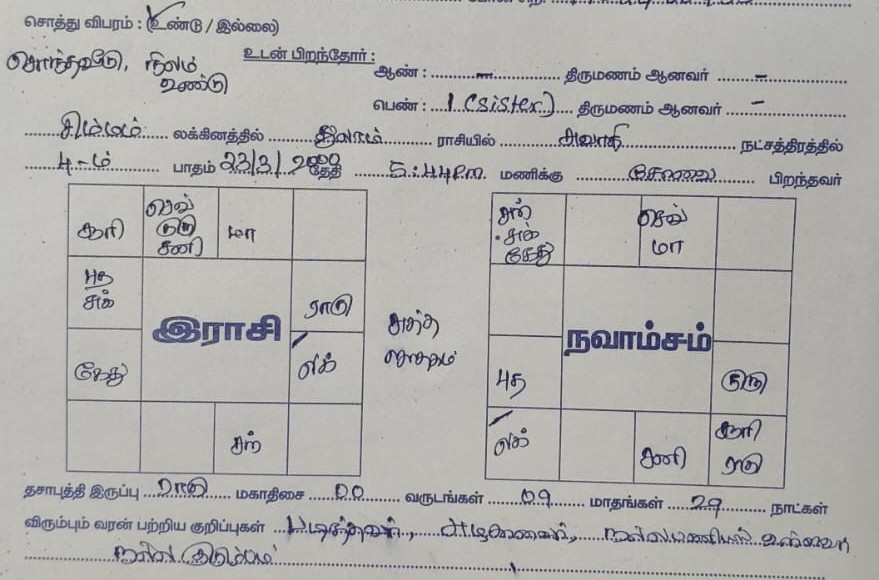 சொத்து விபரம் : (உண்டு / இல்லை)
சொந்தவீடு, நிலம் உண்டு
உடன் பிறந்தோர் :
ஆண் : – திருமணம் ஆனவர் –
பெண் : 1 (sister) திருமணம் ஆனவர் –
சிம்மம் லக்கினத்தில் துலாம் ராசியில் சுவாதி நட்சத்திரத்தில்
4-ம் பாதம் 23/3/2000 தேதி 5:44 P.m. மணிக்கு பிறந்தவர்
சூரி
செவ் குரு சனி
மா
புத சுக்
ராகு
கேது
லக்
சந்
இராசி
சுத்த ஜாதகம்
சந் சுக் கேது
செவ் மா
புத
குரு
லக்
சனி
சூரி ராகு
நவாம்சம்
தசாபுத்தி இருப்பு ராகு மகாதிசை 00 வருடங்கள் 09 மாதங்கள் 29 நாட்கள்
விரும்பும் வரன் பற்றிய குறிப்புகள் படித்தவர், நல்ல பணியில் உள்ளவர்
நல்ல குடும்பம்